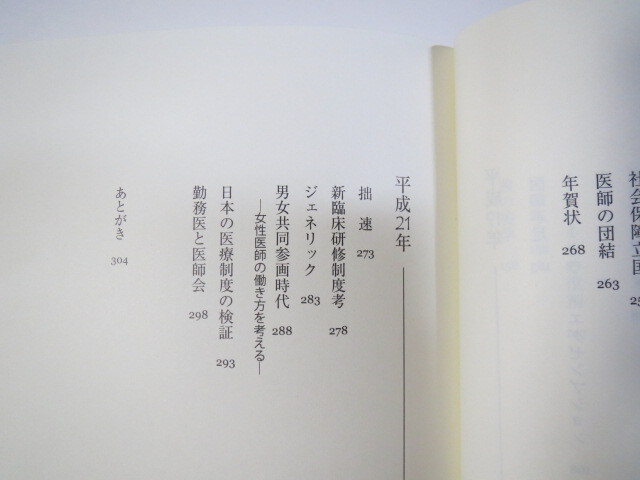 社会保障立国
医師の団結 263
年賀状 268
平成21年
拙速 273
新臨床研修制度考 278
ジェネリック 283
男女共同参画時代 288
―女性医師の働き方を考える―
日本の医療制度の検証 293
勤務医と医師会 298
あとがき 304